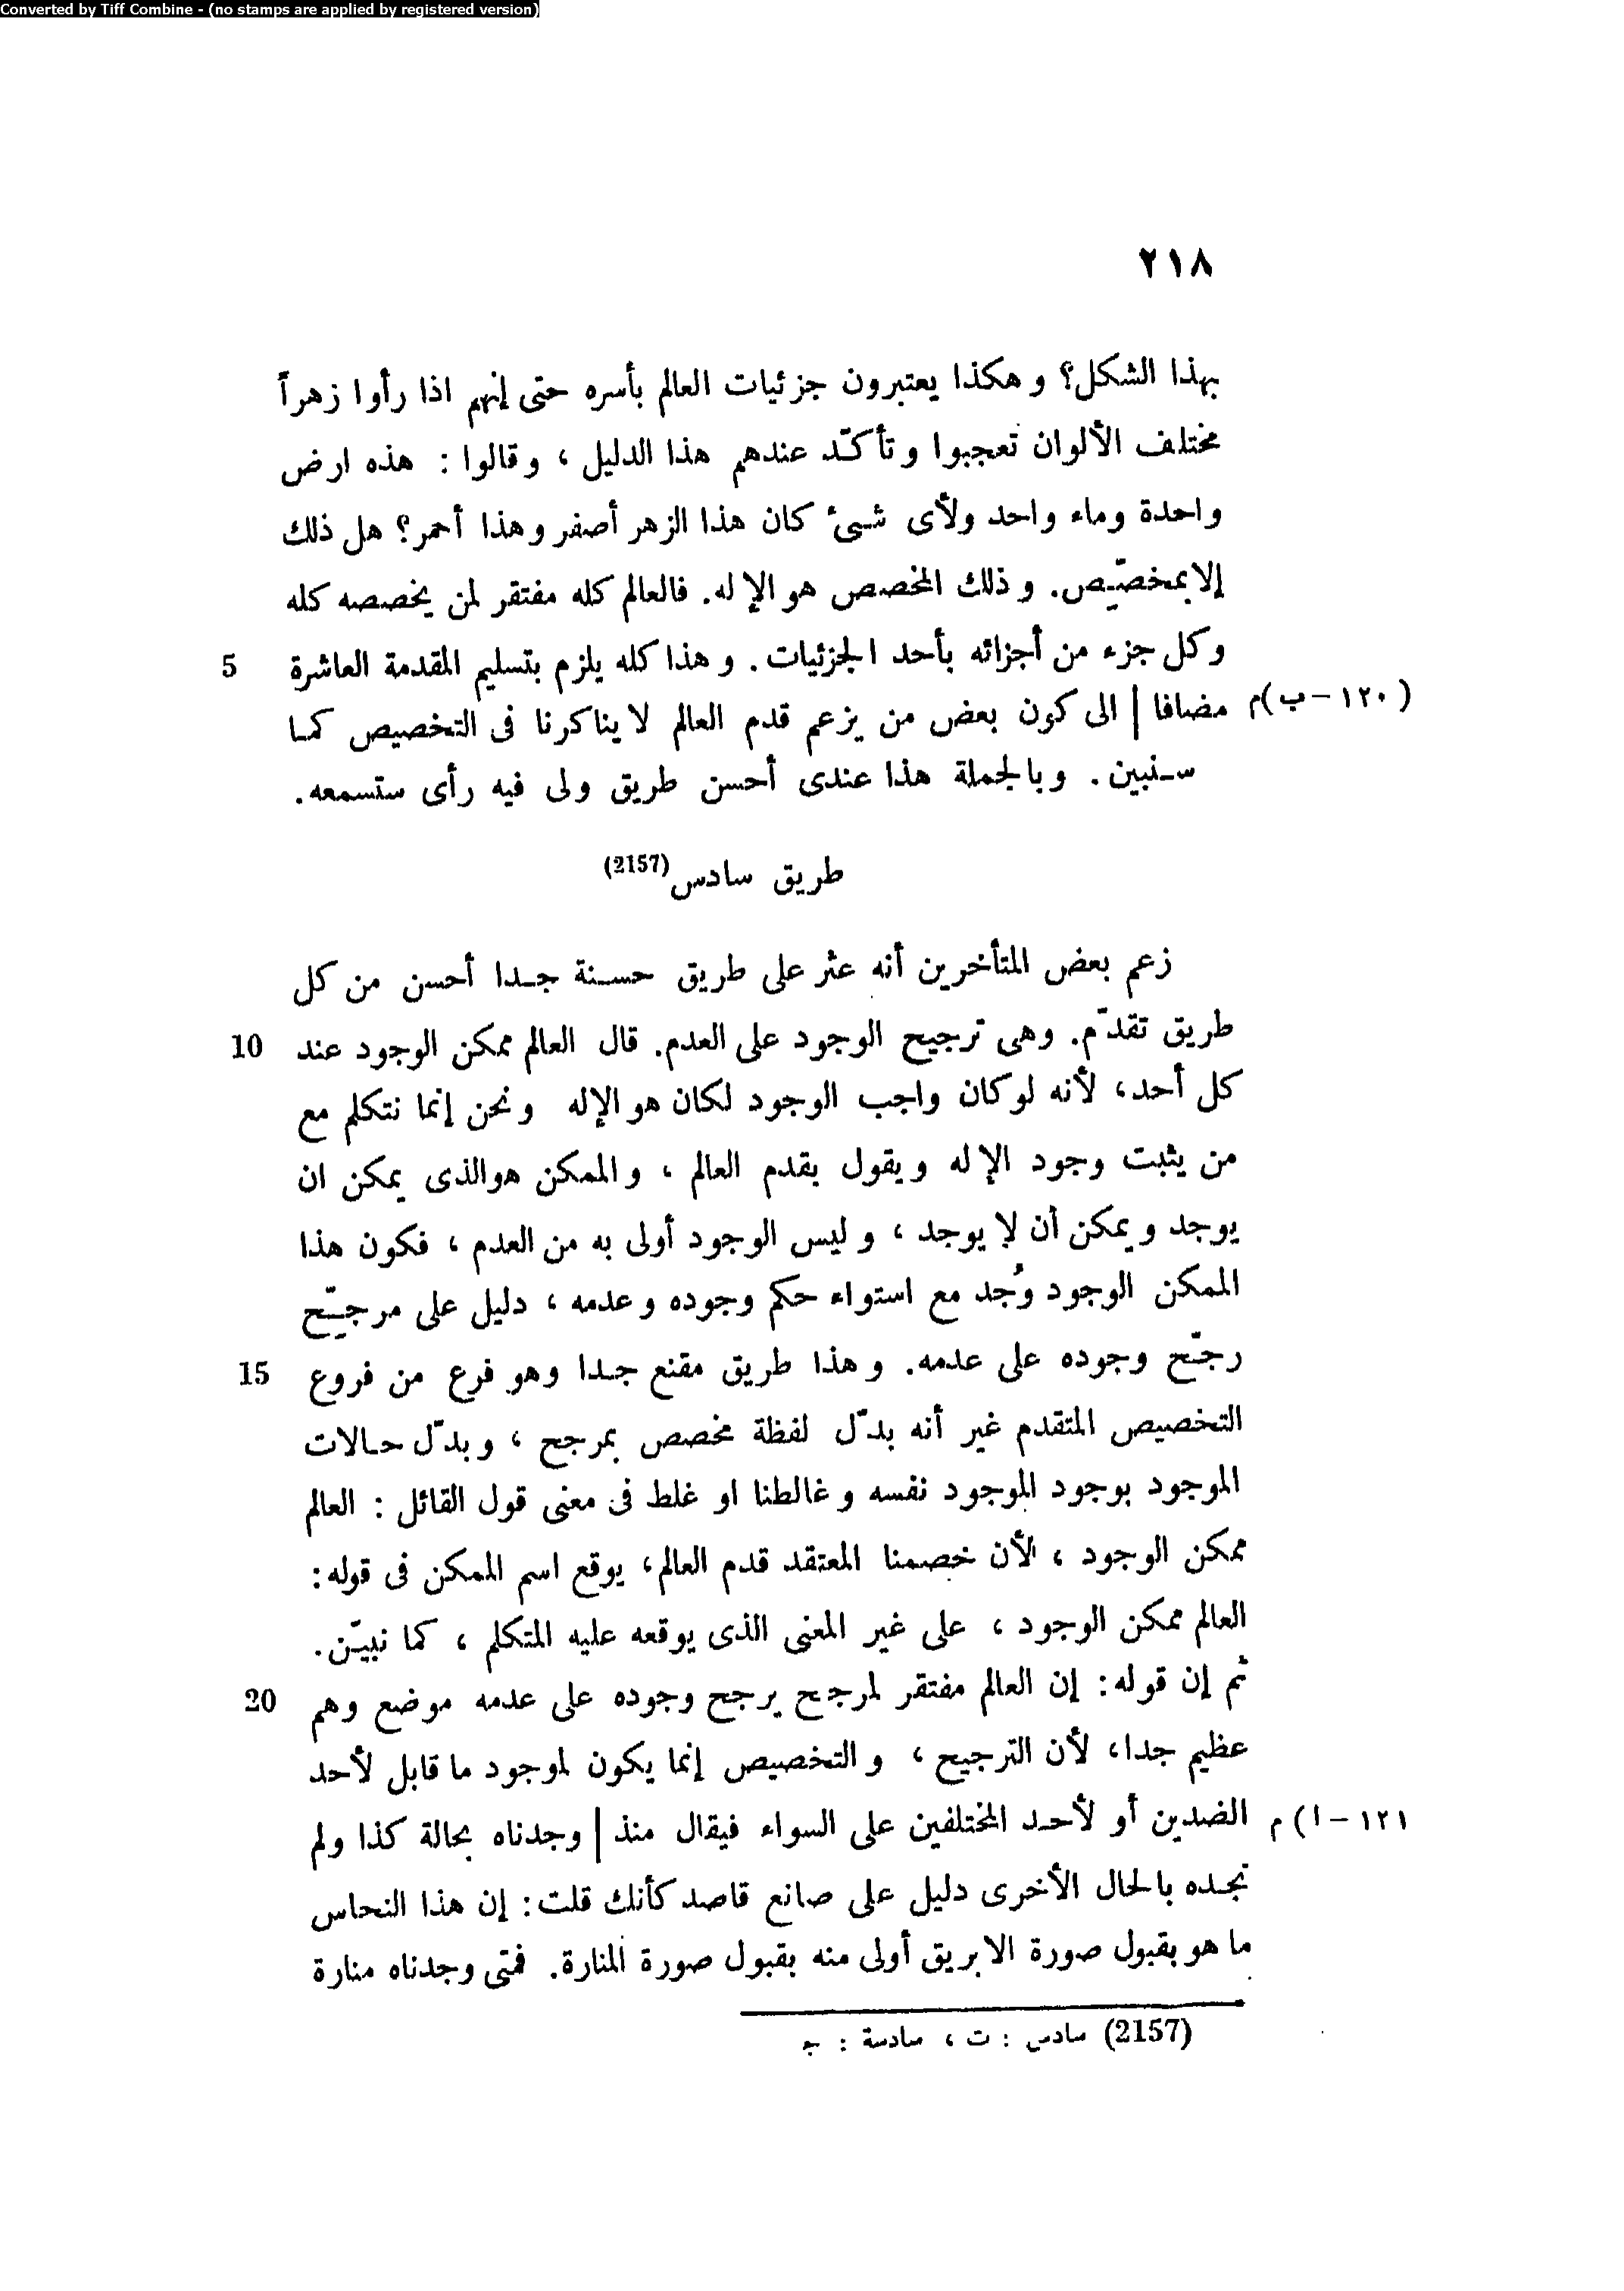 Converted by Tiff Combine - (no stamps are applied by registered version)
٢١٨
بهذا الشكل؟ وهكذا يعتبرون جزئيات العالم بأسره حتى إنهم اذا رأوا زهراً
مختلف الألوان تعجبوا وتأكّد عندهم هذا الدليل ، وقالوا : هذه ارض
واحدة وماء واحد ولأى شىء كان هذا الزهر أصفر وهذا أحمر؟ هل ذلك
إلا بمخصّص. وذلك المخصص هو الإله. فالعالم كله مفتقر لمن يخصصه كله
وكل جزء من أجزائه بأحد الجزئيات. وهذا كله يلزم بتسليم المقدمة العاشرة 5
(١٢٠-ب)م مضافا | الى كون بعض من يزعم قدم العالم لا يناكرنا فى التخصيص كما
سنبين. وبالجملة هذا عندى أحسن طريق ولى فيه رأى ستسمعه.
طريق سادس (2157)
زعم بعض المتأخرين أنه عثر على طريق حسنة جدا أحسن من كل
طريق تقدّم. وهى ترجيح الوجود على العدم. قال العالم ممكن الوجود عند 10
كل أحد، لأنه لو كان واجب الوجود لكان هو الإله ونحن إنما نتكلم مع
من يثبت وجود الإله ويقول بقدم العالم ، والممكن هو الذى يمكن ان
يوجد ويمكن أن لا يوجد ، وليس الوجود أولى به من العدم ، فكون هذا
الممكن الوجود وُجد مع استواء حكم وجوده وعدمه ، دليل على مرجِّح
رجّح وجوده على عدمه. وهذا طريق مقنع جدا وهو فرع من فروع 15
التخصيص المتقدم غير أنه بدّل لفظة مخصص بمرجح ، وبدّل حالات
الموجود بوجود الموجود نفسه وغالطنا او غلط فى معنى قول القائل : العالم
ممكن الوجود ، لأن خصمنا المعتقد قدم العالم، يوقع اسم الممكن فى قوله:
العالم ممكن الوجود ، على غير المعنى الذى يوقعه عليه المتكلم ، كما نبيّن.
ثم إن قوله: إن العالم مفتقر لمرجح يرجح وجوده على عدمه موضع وهم 20
عظيم جدا، لأن الترجيح ، والتخصيص إنما يكون لموجود ما قابل لأحد
١٢١-ا)م الضدين أو لأحد المختلفين على السواء فيقال منذ | وجدناه بحالة كذا ولم
نجده بالحال الأخرى دليل على صانع قاصد كأنك قلت: إن هذا النحاس
ما هو بقبول صورة الابريق أولى منه بقبول صورة المنارة. فمتى وجدناه منارة
(2157) سادس : ت ، سادسة : ج